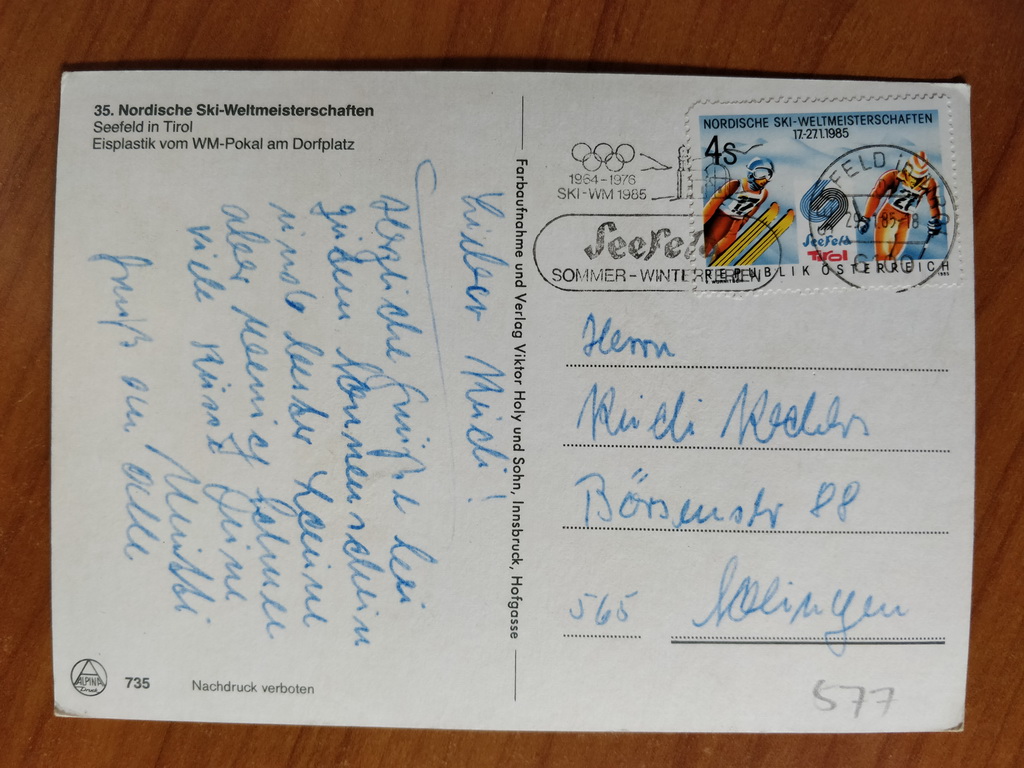 35. Nordische Ski-Weltmeisterschaften
Seefeld in Tirol
Eisplastik vom WM-Pokal am Dorfplatz
Lieber Rudi!
Herzliche Grüße bei
gutem Sonnenschein
wenig Schnee
viele Küsse Deine
Gruß an alle
Farbaufnahme und Verlag Viktor Holy und Sohn, Innsbruck, Hofgasse
1964-1976
SKI-WM 1985
Seefeld
SOMMER-WINTERFERIEN
NORDISCHE SKI-WELTMEISTERSCHAFTEN
17.-27.1.1985
4S
17
27
Seefeld
Tirol
REPUBLIK ÖSTERREICH
SEEFELD in TIROL
Herrn
Rudi
Börsenstr 88
565 Solingen
577
ALPINA
Druck
735
Nachdruck verboten